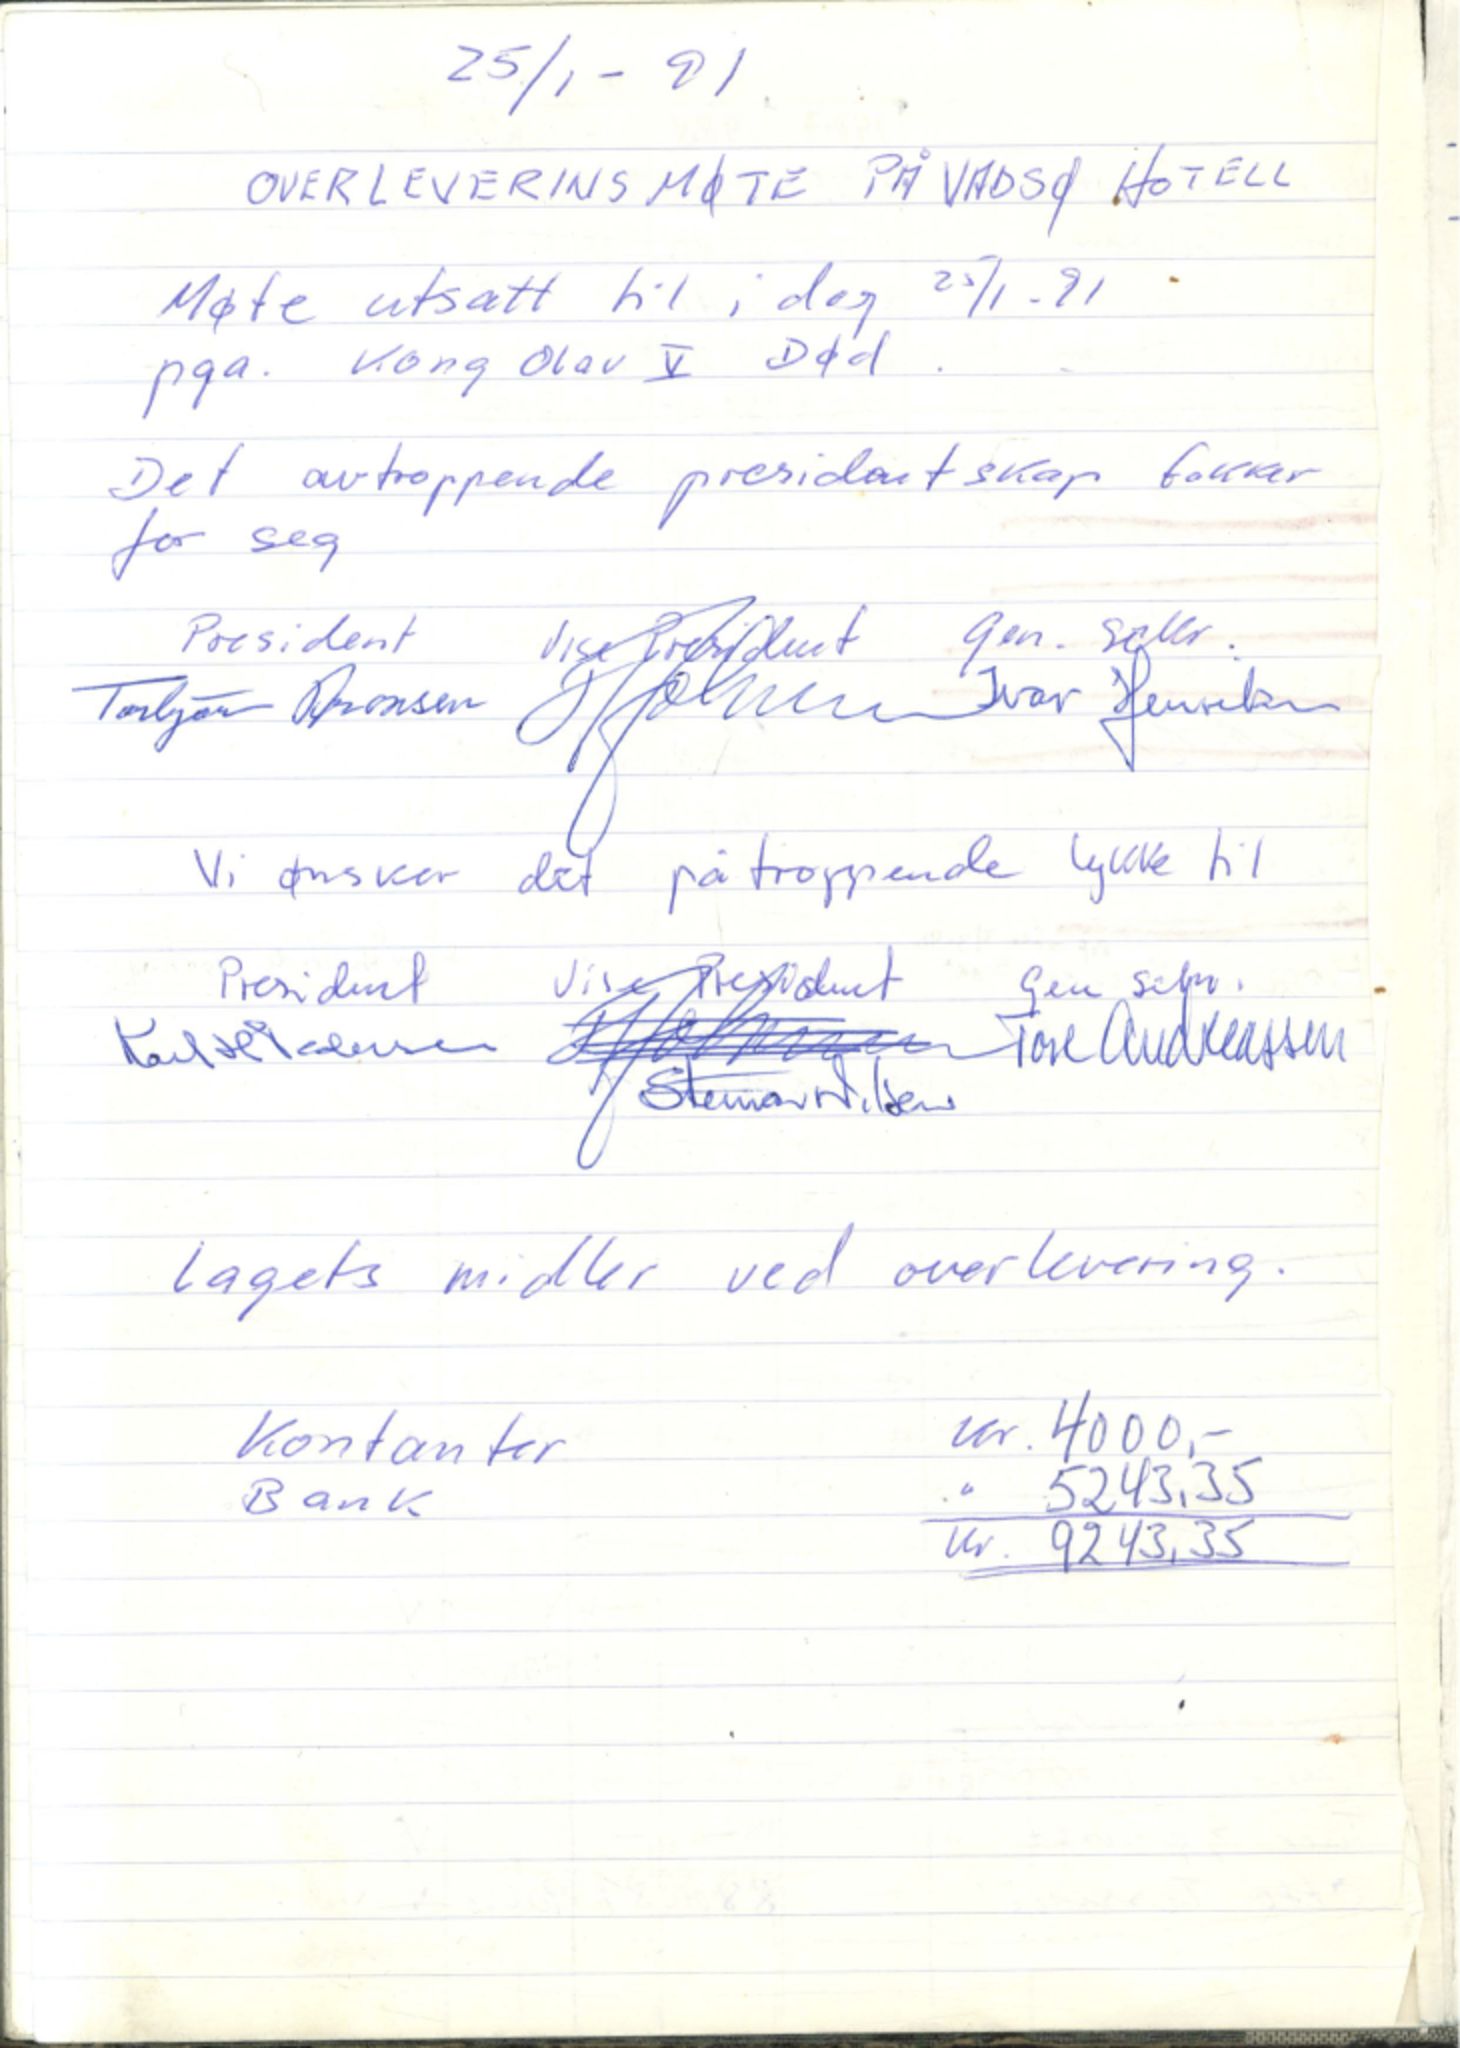 25/1 - 91
OVERLEVERINS MØTE PÅ VADSØ HOTELL
Møte utsatt til i dag 25/1 - 91
pga. Kong Olav V Død.
Det avtroppende presidentskap takker
for seg
President Vise President Gen. sekr.
Torbjørn Aronsen Ivar Henriksen
Vi ønsker det påtroppende lykke til
President Vise President Gen sekr.
Tore Andreassen
Steinar Nilsen
Lagets midler ved overlevering.
Kontanter kr. 4000,-
Bank " 5243,35
kr. 9243,35